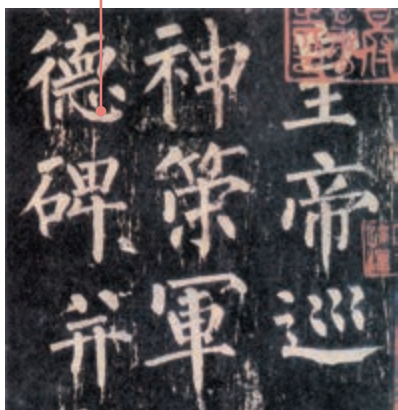 皇帝巡
神策軍
德碑并